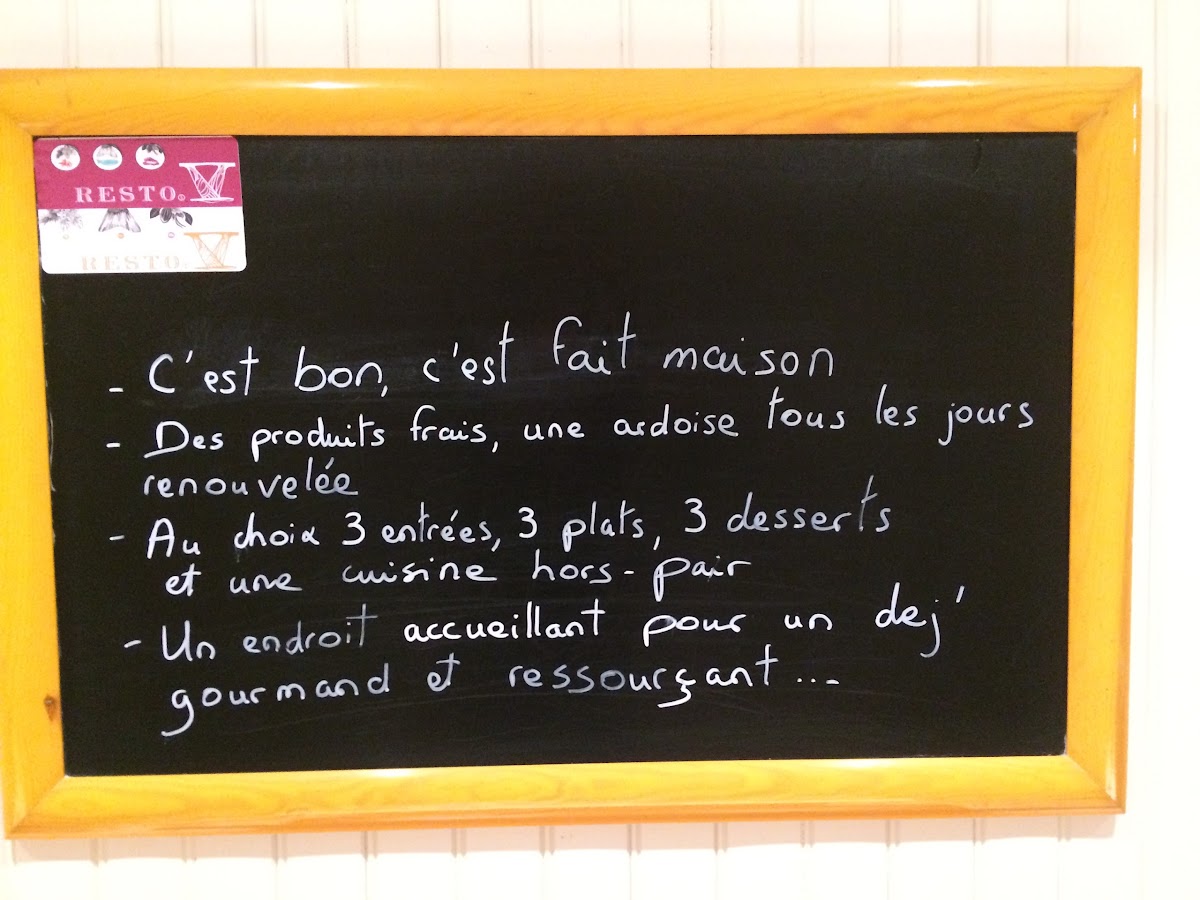 RESTO
RESTO
- C'est bon, c'est fait maison
- Des produits frais, une ardoise tous les jours
renouvelée
- Au choix 3 entrées, 3 plats, 3 desserts
et une cuisine hors-pair
- Un endroit accueillant pour un dej'
gourmand et ressourçant...